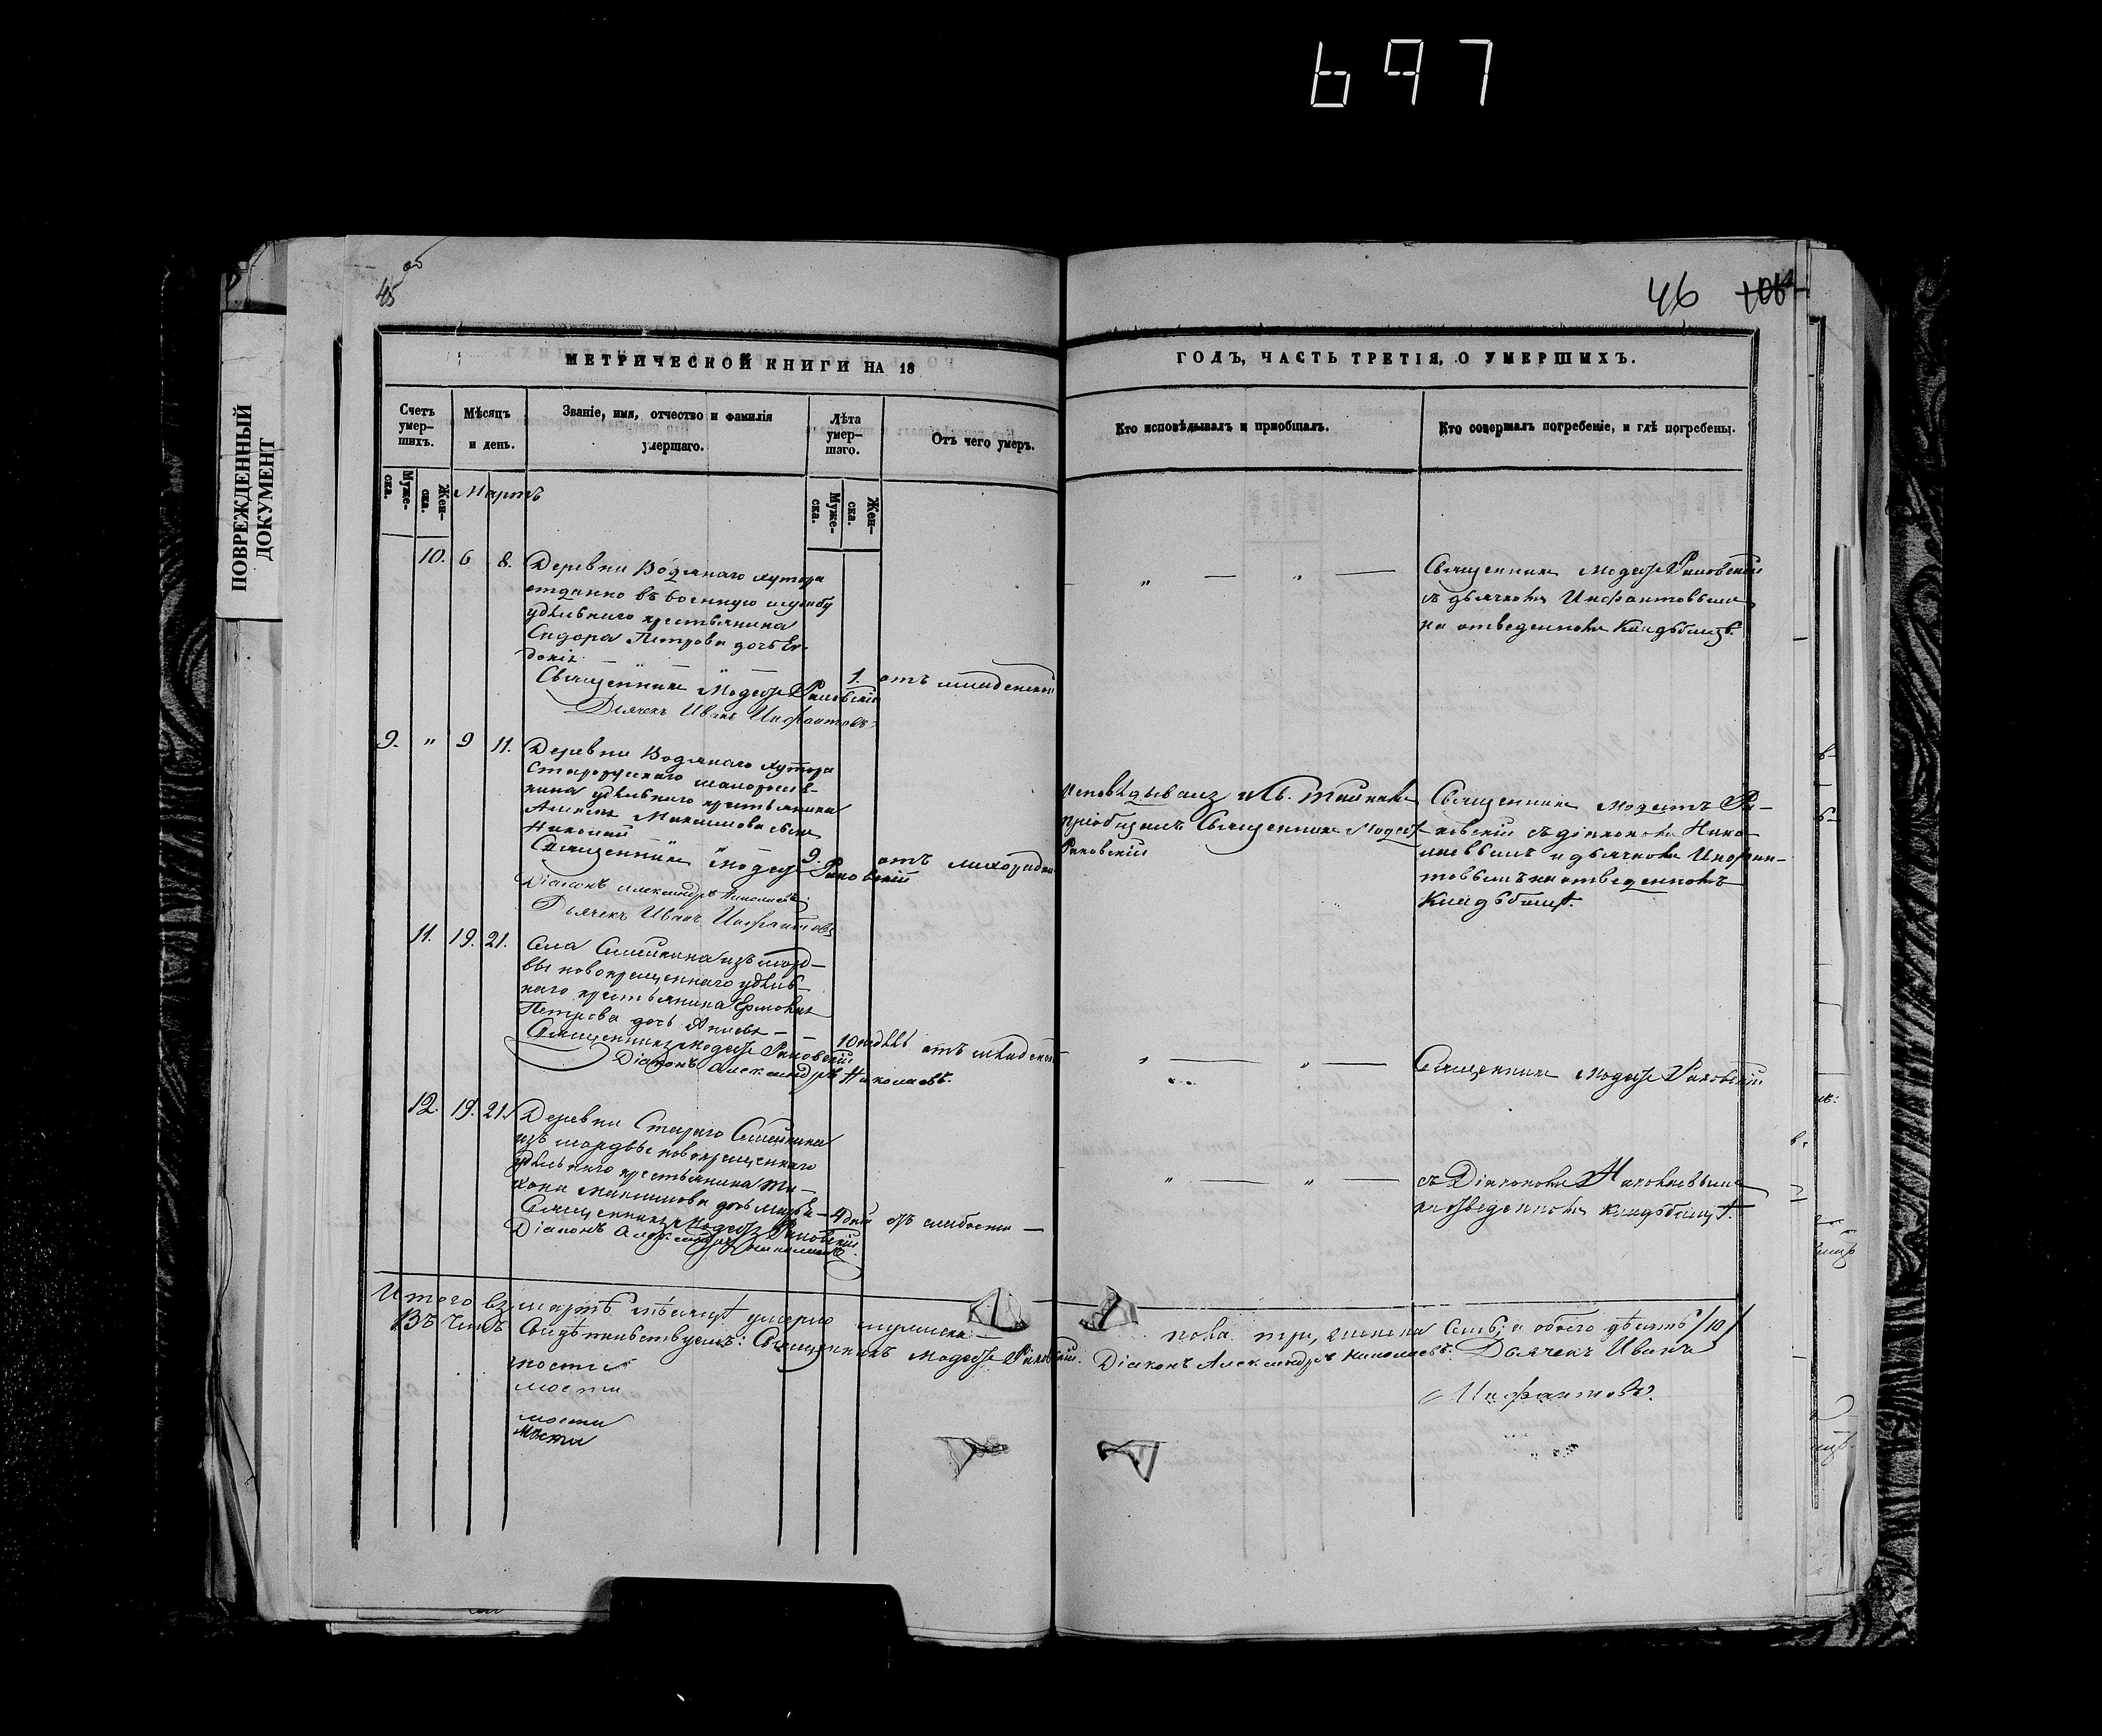 697
45 об
46
ПОВРЕЖДЕННЫЙ
ДОКУМЕНТ
МЕТРИЧЕСКОЙ КНИГИ НА 18
ГОДЪ, ЧАСТЬ ТРЕТІЯ, О УМЕРШИХЪ.
Счетъ умер-шихъ.
Мѣсяцъ и день.
Званіе, имя, отчество и фамилія умершаго.
Лѣта умер-шаго.
Отъ чего умеръ.
Кто исповѣдывалъ и пріобщалъ.
Кто совершалъ погребеніе, и гдѣ погребены.
Муже-ска.
Жен-ска.
Муже-ска.
Жен-ска.
Мартъ
10. 6 8. Деревни Водянаго хутора
отданно въ военную службу
удѣльнаго крестьянина
Сидора Петрова дочь Ев-
докія
Священникъ Модестъ Раковскій
Дьячекъ Иванъ Инфантовъ
1. отъ младенской
" — " —
Священникъ Модестъ Раковскій
съ дьячкомъ Инфантовымъ
на отведенномъ кладбищѣ.
9. " 9 11. Деревни Водянаго хутора
удѣльнаго крестьянина
Максимова сынъ
Николай
Священникъ Модестъ Раковскій
Діаконъ Александръ Николаевъ
Дьячекъ Иванъ Инфантовъ
9. отъ лихорадки
Исповѣдывалъ и Св. Тайнами
пріобщалъ Священникъ Модестъ
Раковскій
Священникъ Модестъ Ра-
ковскій съ діакономъ Нико-
лаевымъ и дьячкомъ Инфан-
товымъ на отведенномъ
кладбищѣ.
11. 19. 21. Села Семейкина изъ морд-
вы новокрещеннаго удѣль-
наго крестьянина
Петрова дочь
Священникъ Модестъ Раковскій
Діаконъ Александръ Николаевъ.
10 недѣль отъ младенской
" — " —
Священникъ Модестъ Раковскій
12. 19. 21. Деревни Стараго Семейкина
изъ мордвы новокрещеннаго
удѣльнаго крестьянина Ти-
хона Максимова дочь
Священникъ Модестъ Раковскій
Діаконъ Александръ Николаевъ
4 дней отъ слабости —
" — " —
съ Діакономъ Николаевымъ
на отведенномъ кладбищѣ.
Итого въ мартѣ мѣсяцѣ умерло мужеска пола три, женска семь; а обоего десять /10/
Въ чемъ свидѣтельствуемъ: Священникъ Модестъ Раковскій. Діаконъ Александръ Николаевъ. Дьячекъ Иванъ
Инфантовъ.